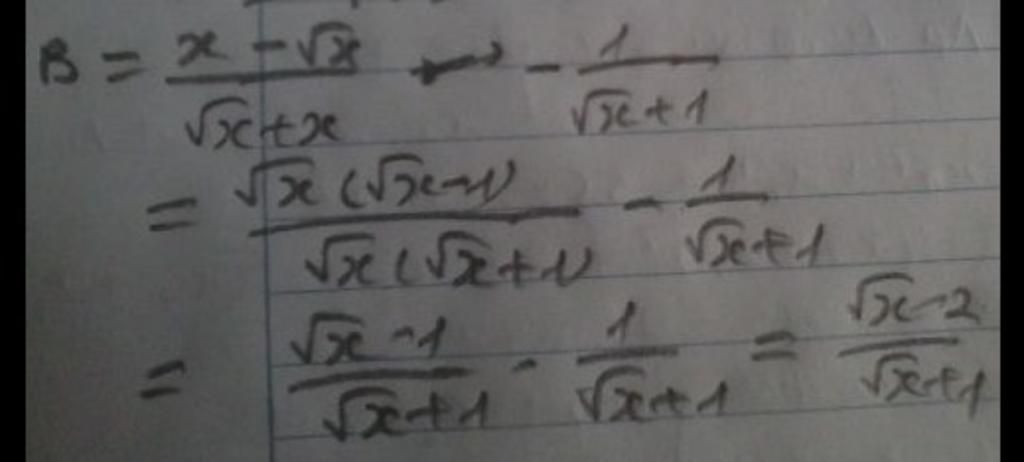 B = (x - √x)/(√x + x) - 1/(√x + 1)
= √x(√x - 1)/√x(√x + 1) - 1/(√x + 1)
= (√x - 1)/(√x + 1) - 1/(√x + 1) = (√x - 2)/(√x + 1)